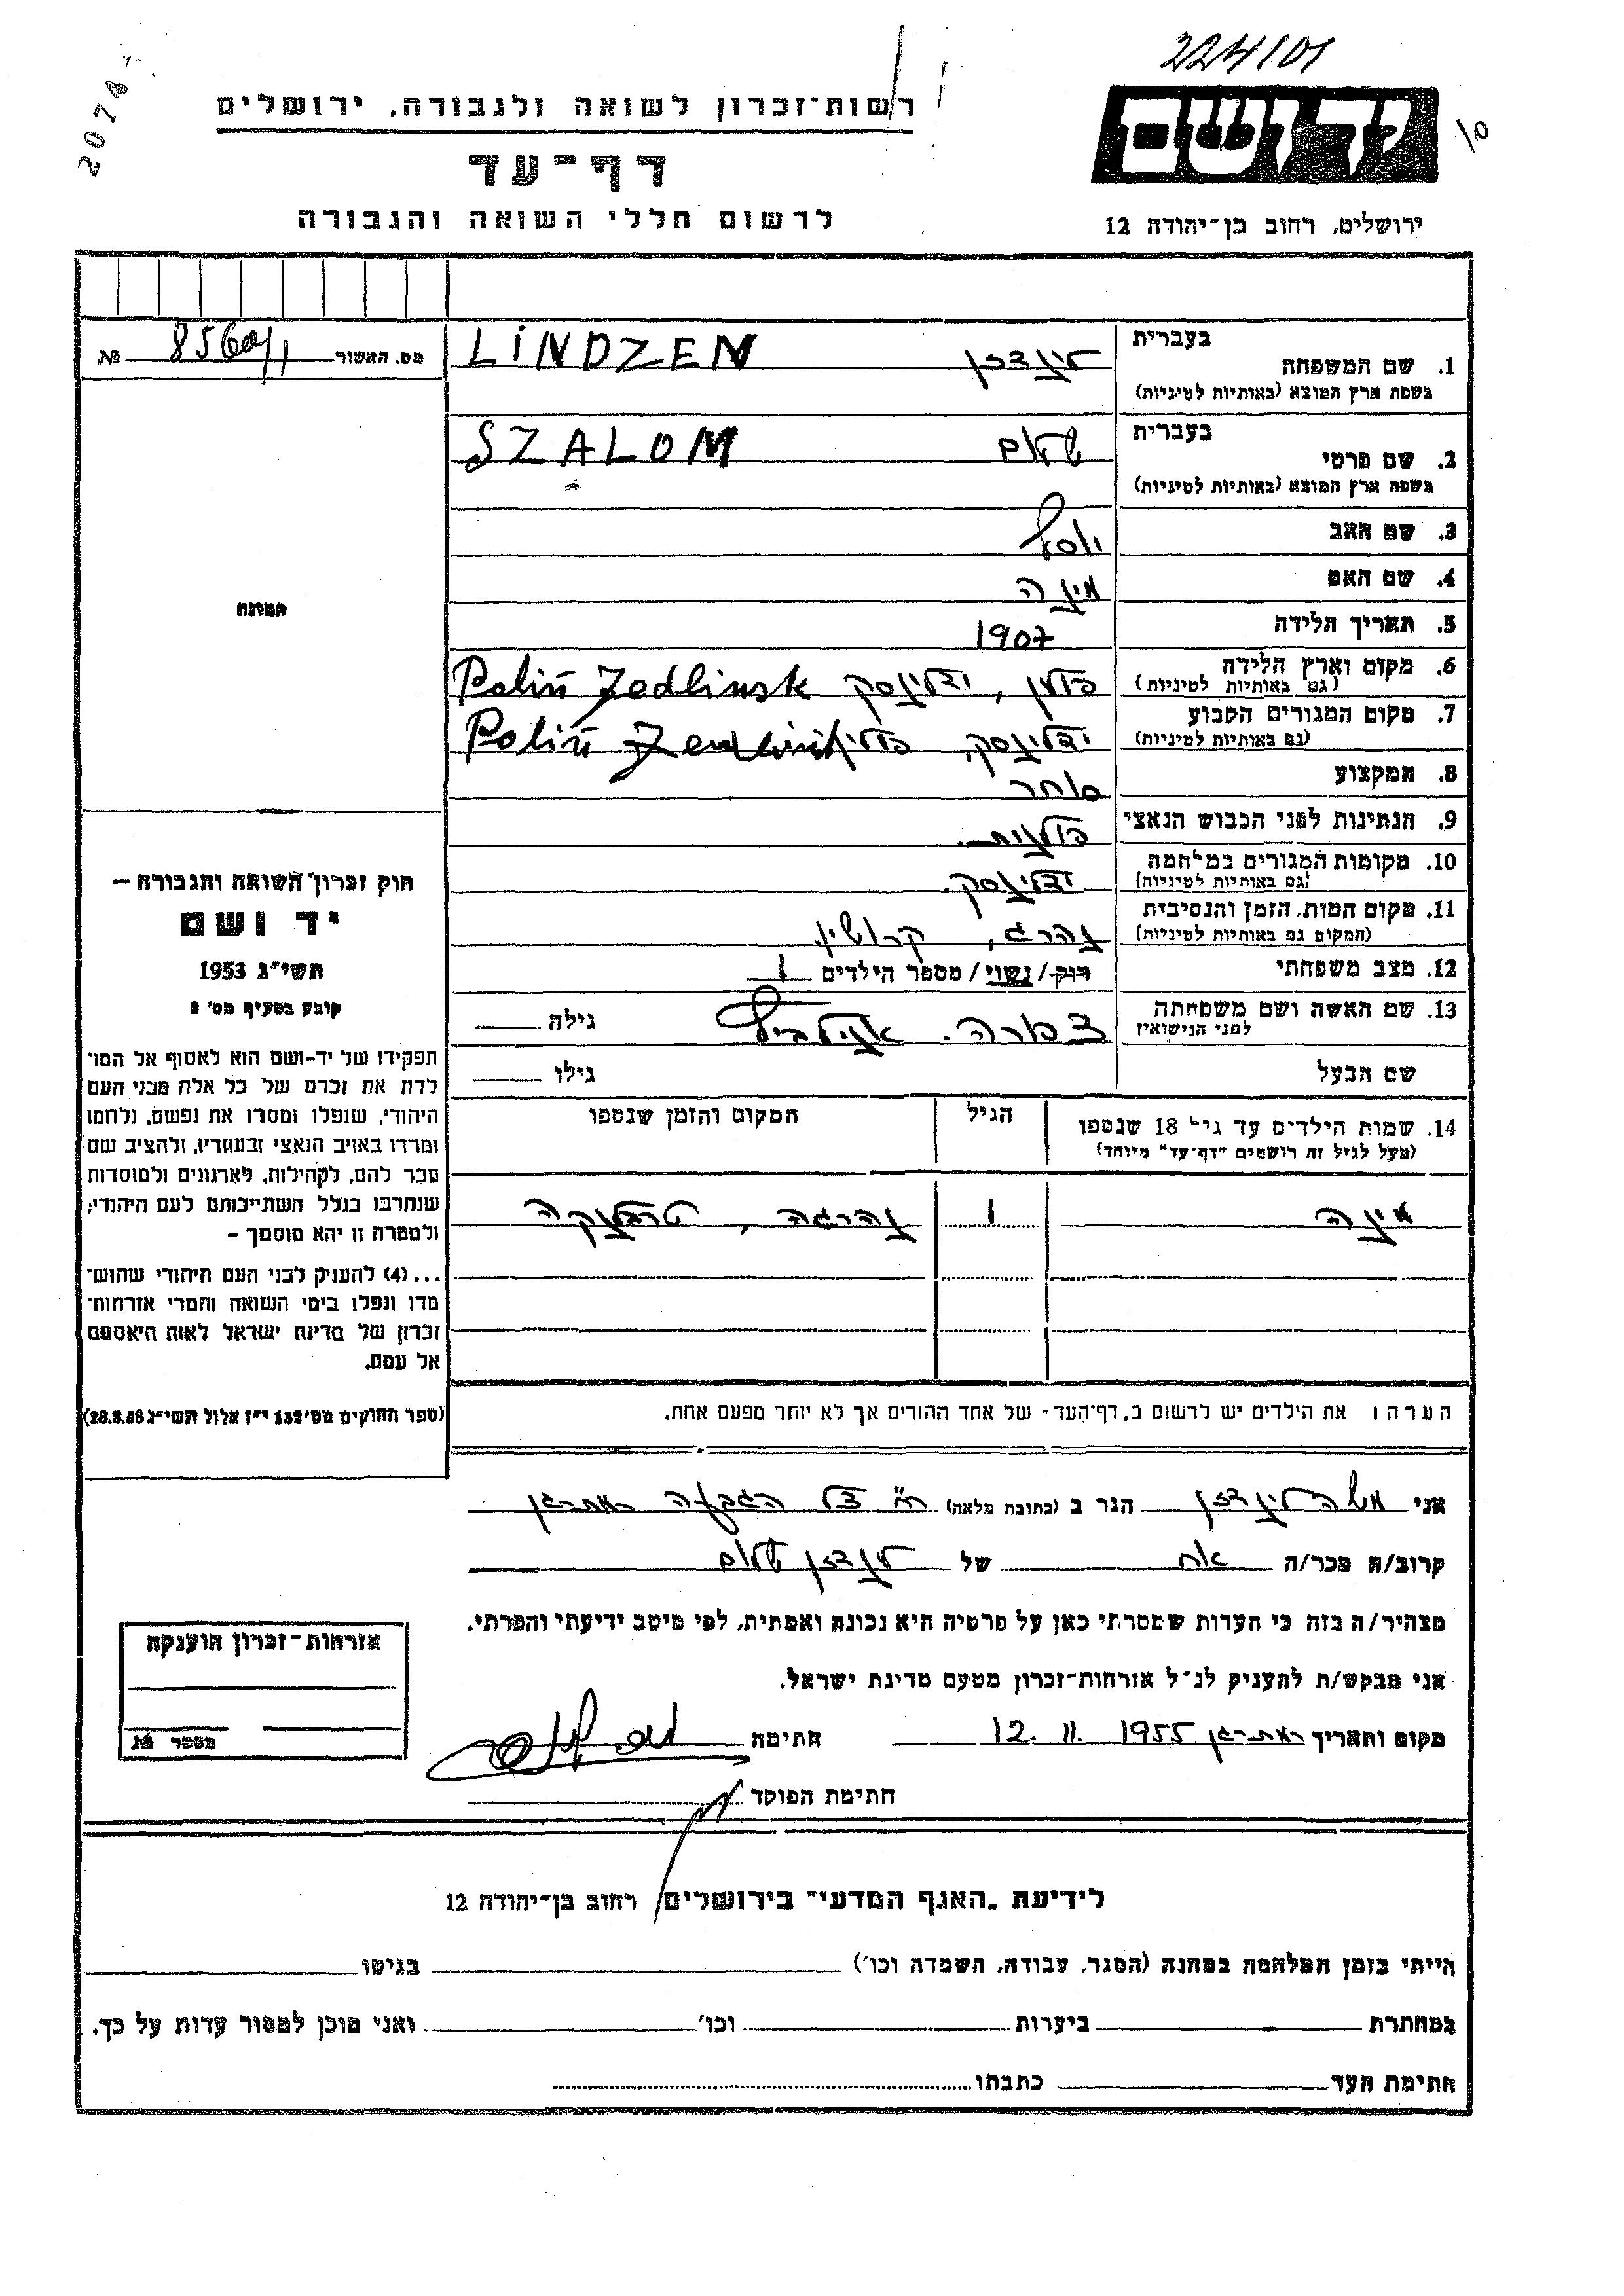 224/01
2074
10
רשות־זכרון לשואה ולגבורה, ירושלים
יד ושם
דף־עד
לרשום חללי השואה והגבורה
ירושלים, רחוב בן־יהודה 12
מס. האשור № 8560/1
בעברית לינדזן LINDZEN
1. שם המשפחה
בשפת ארץ המוצא (באותיות לטיניות)
בעברית שלום SZALOM
2. שם פרטי
בשפת ארץ המוצא (באותיות לטיניות)
3. שם האב יוסף
4. שם האם מינה
5. תאריך הלידה 1907
6. מקום וארץ הלידה פולין, ידלינסק Poliń Jedlinsk
(גם באותיות לטיניות)
7. מקום המגורים הקבוע ידלינסק, פולין Poliń
(גם באותיות לטיניות)
8. המקצוע סוחר
9. הנתינות לפני הכבוש הנאצי פולנית.
10. מקומות המגורים במלחמה ידלינסק.
(גם באותיות לטיניות)
11. מקום המות, הזמן והנסיבות נהרג, קרושין.
(המקום גם באותיות לטיניות)
12. מצב משפחתי רוק/נשוי/ מספר הילדים 1
13. שם האשה ושם משפחתה לפני הנישואין צפורה. גילה
שם הבעל גילו
14. שמות הילדים עד גיל 18 שנספו הגיל המקום והזמן שנספו
(מעל לגיל זה רושמים "דף־עד" מיוחד)
מינה 1 נהרגה, טרבלינקה
הערה: את הילדים יש לרשום ב„דף־העד" של אחד ההורים אך לא יותר מפעם אחת.
תמונה
חוק זכרון השואה והגבורה —
יד ושם
תשי"ג 1953
קובע בסעיף מס' 2
תפקידו של יד־ושם הוא לאסוף אל המו־
לדת את זכרם של כל אלה מבני העם
היהודי, שנפלו ומסרו את נפשם, נלחמו
ומרדו באויב הנאצי ובעוזריו, ולהציב שם
וזכר להם, לקהילות, לארגונים ולמוסדות
שנחרבו בגלל השתייכותם לעם היהודי;
ולמטרה זו יהא מוסמך –
...(4) להעניק לבני העם היהודי שהוש־
מדו ונפלו בימי השואה והמרי אזרחות־
זכרון של מדינת ישראל לאות היאספם
אל עמם.
(ספר החוקים מס' 132 י"ז אלול תשי"ג 28.8.53)
אני משה לינדזן הגר ב (כתובת מלאה) רח' צל הגבעה רמת־גן
קרוב/ה מכר/ה אח של לינדזן שלום
מצהיר/ה בזה כי העדות שמסרתי כאן על פרטיה היא נכונה ואמתית, לפי מיטב ידיעתי והכרתי.
אני מבקש/ת להעניק לנ"ל אזרחות־זכרון מטעם מדינת ישראל.
מקום ותאריך רמת־גן 12. 11. 1955 חתימה
חתימת הפוקד
אזרחות־זכרון הוענקה
מספר №
לידיעת „האגף המדעי" בירושלים רחוב בן־יהודה 12
הייתי בזמן המלחמה במחנה (הסגר, עבודה, השמדה וכו') בגיטו
במחתרת ביערות וכו' ואני מוכן למסור עדות על כך.
חתימת העד כתבתו